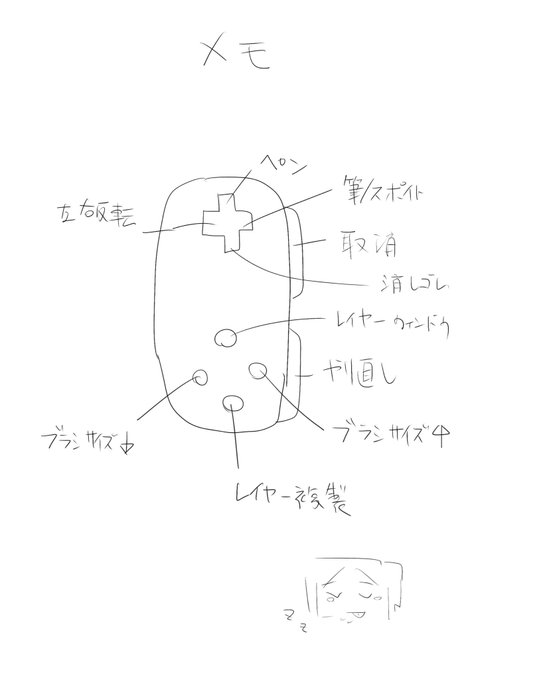 メモ
ペン
筆/スポイト
左右反転
取消
消しゴム
レイヤーウィンドウ
やり直し
ブラシサイズ↓
ブラシサイズ↑
レイヤー複製
zz